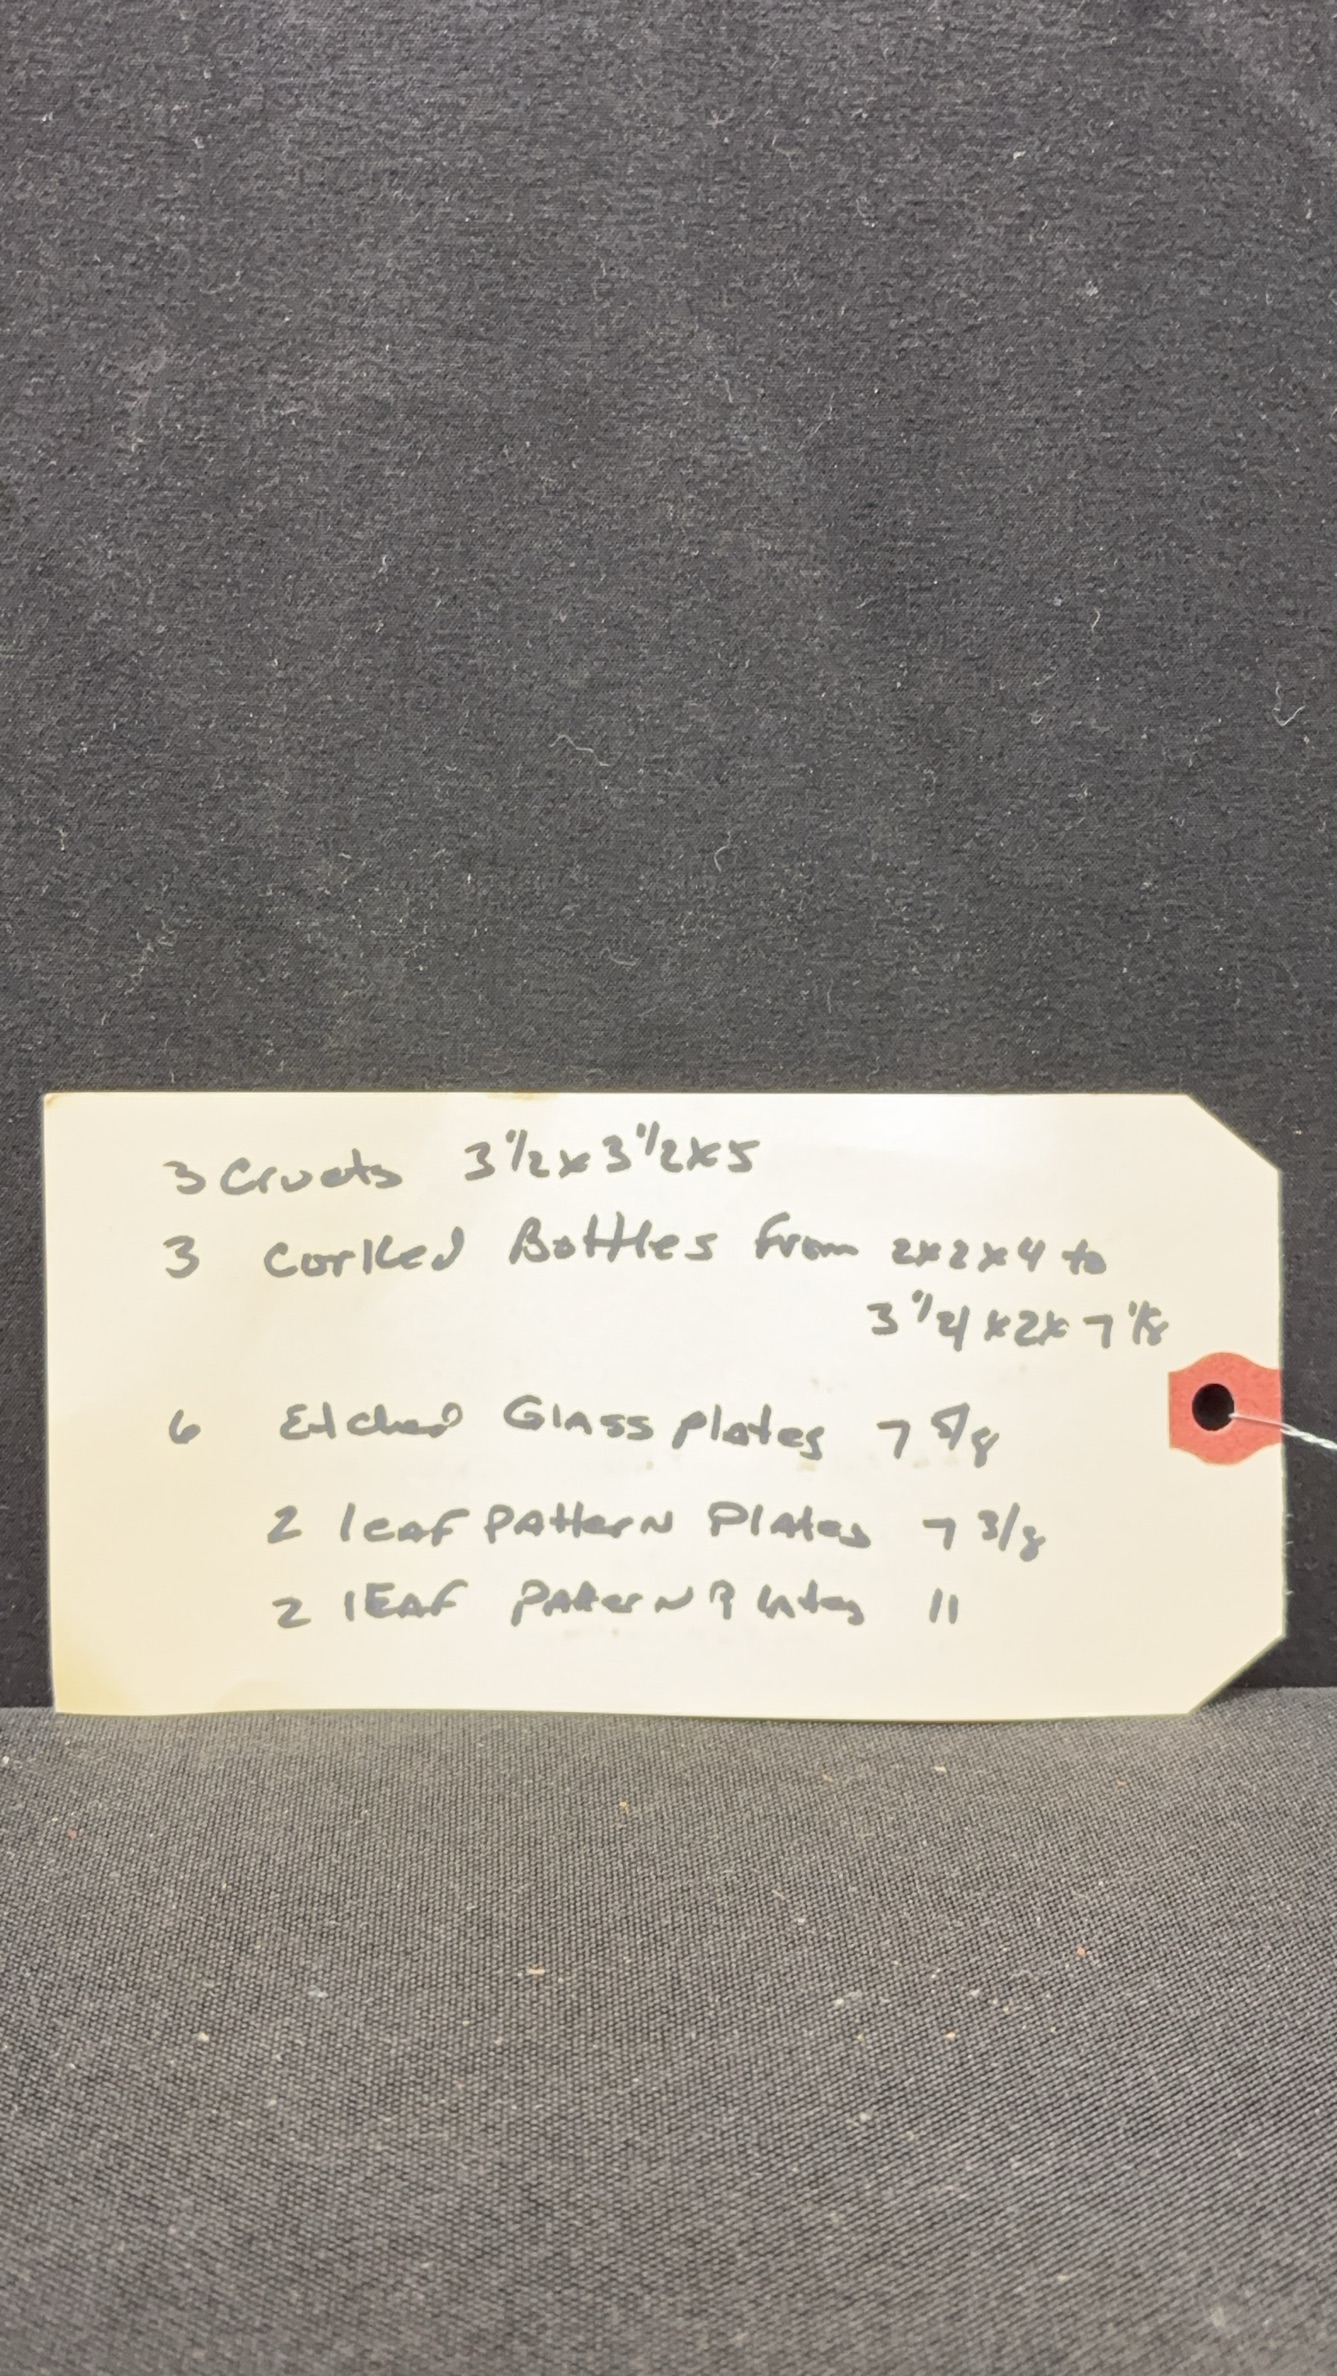 3 Cruets 3 1/2 x 3 1/2 x 5
3 Corked Bottles from 2x2x4 to
3 1/4 x 2 x 7 1/8
6 Etched Glass plates 7 5/8
2 leaf Pattern Plates 7 3/8
2 lEAF Pattern Plates 11